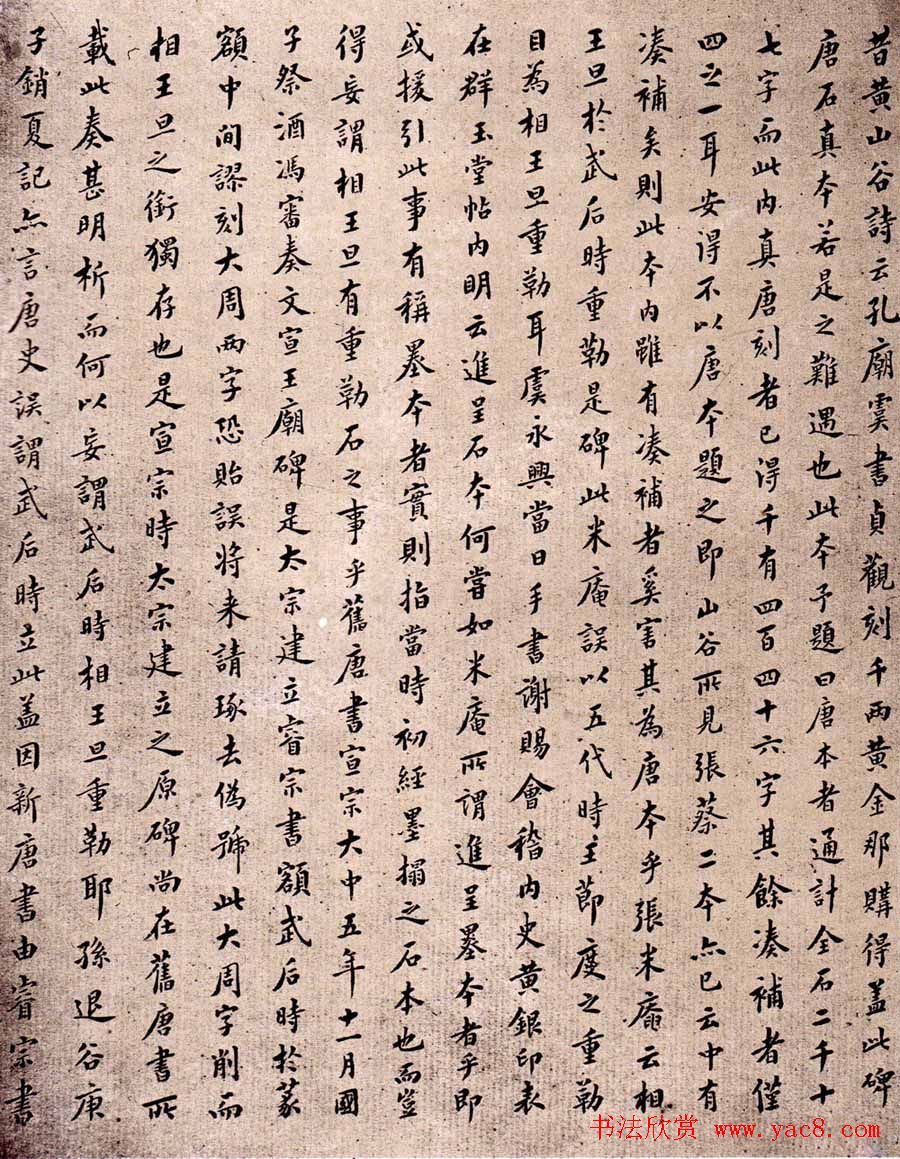 昔黄山谷詩云孔廟虞書貞觀刻千兩黄金那購得蓋此碑
唐石真本若是之難遇也此本予題曰唐本者通計全石二千十
七字而此内真唐刻者已得千有四百四十六字其餘湊補者僅
四之一耳安得不以唐本題之即山谷所見張蔡二本亦已云中有
湊補矣則此本内雖有湊補者奚害其為唐本乎張米庵云相
王旦於武后時重勒是碑此米庵誤以五代時主節度之重勒
目為相王旦重勒耳虞永興當日手書謝賜會稽内史黄銀印表
在群玉堂帖内明云進呈石本何嘗如米庵所謂進呈墨本者乎即
或援引此事有稱墨本者實則指當時初經墨搨之石本也而豈
得妄謂相王旦有重勒石之事乎舊唐書宣宗大中五年十一月國
子祭酒馮審奏文宣王廟碑是太宗建立睿宗書額武后時於篆
額中間謬刻大周兩字恐貽誤将来請琢去偽號此大周字削而
相王旦之銜獨存也是宣宗時太宗建立之原碑尚在舊唐書所
載此奏甚明析而何以妄謂武后時相王旦重勒耶孫退谷庚
子銷夏記亦言唐史誤謂武后時立此蓋因新唐書由睿宗書
书法欣赏 www.yac8.com